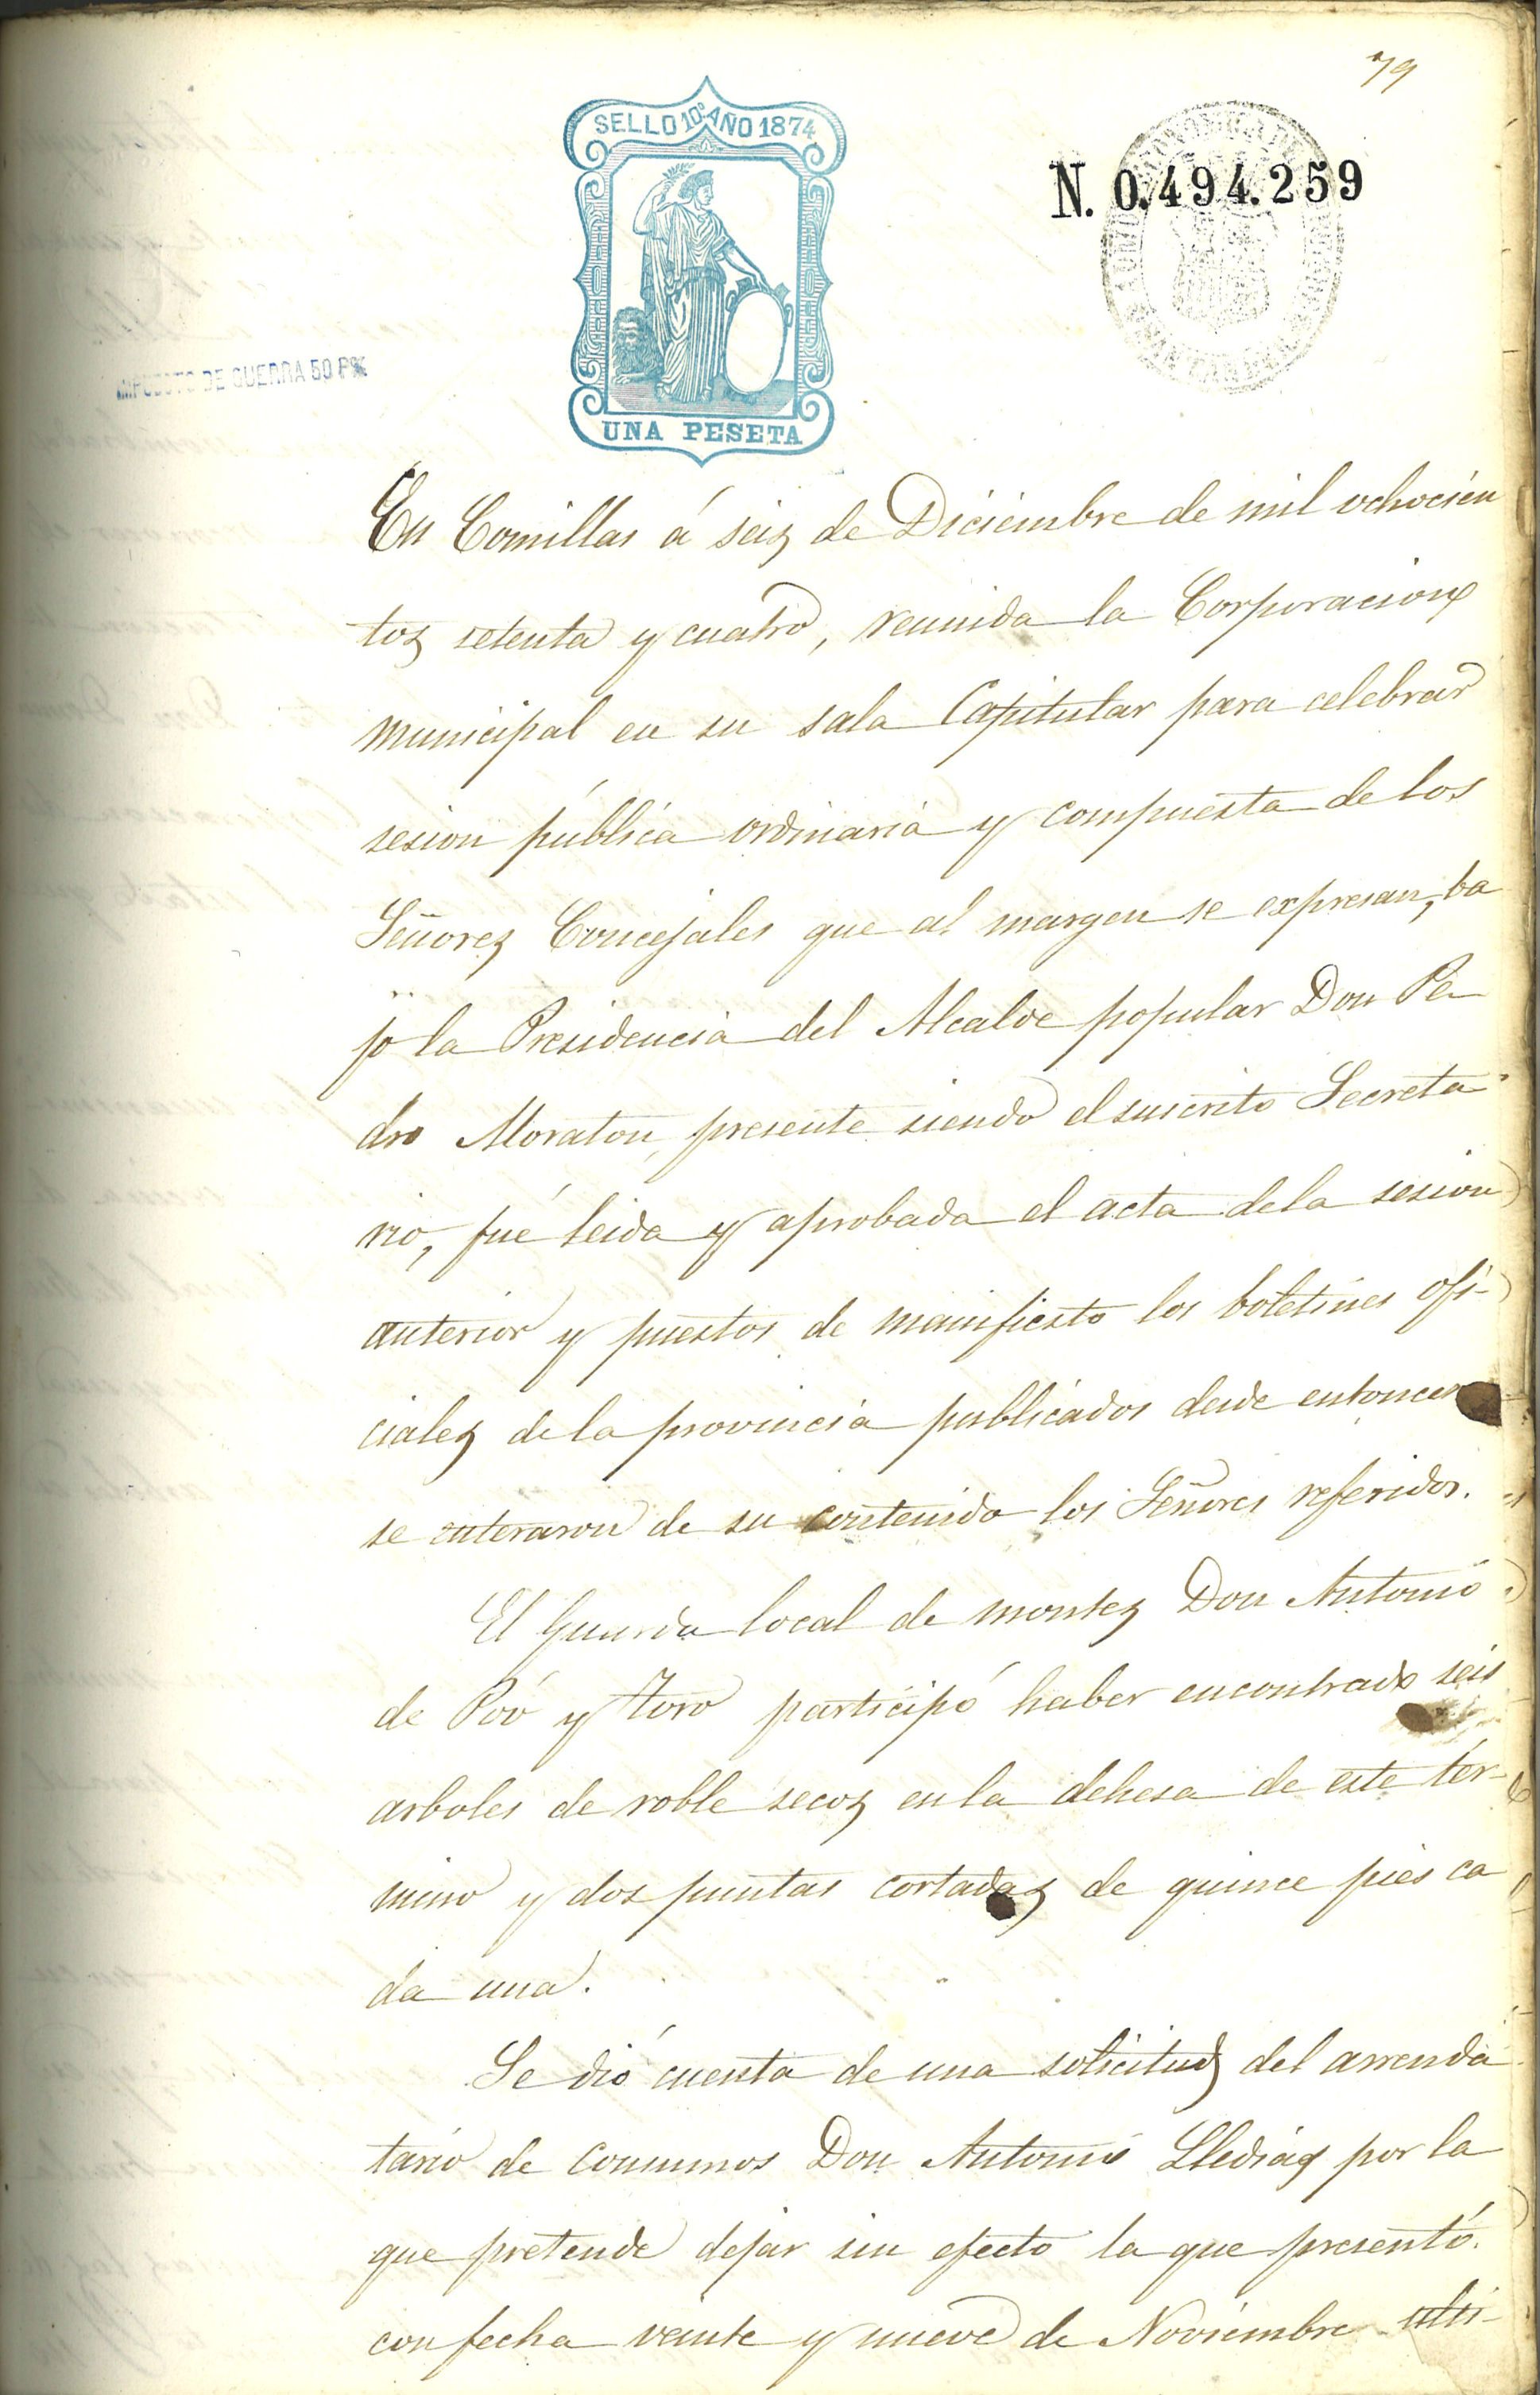 79
SELLO 10º AÑO 1874
N. 0.494.259
IMPUESTO DE GUERRA 50 P%
UNA PESETA
En Comillas á seis de Diciembre de mil ochocien
tos setenta y cuatro, reunida la Corporacion
municipal en su sala Capitular para celebrar
sesion pública ordinaria y compuesta de los
Señores Concejales que al margen se expresan, ba
jo la Presidencia del Alcalde popular Don Pe
dro Moraton, presente siendo el suscrito Secreta
rio, fué leida y aprobada el acta de la sesion
anterior y puestos de manifiesto los boletines ofi-
ciales de la provincia publicados desde entonces
se enteraron de su contenido los Señores referidos.
El Guarda local de montes Don Antonio
de Poó y Toro participó haber encontrado seis
arboles de roble secos en la dehesa de este tér-
mino y dos puntas cortadas de quince pies ca
da una.
Se dió cuenta de una solicitud del arrenda
tario de consumos Don Antonio Lledias por la
que pretende dejar sin efecto la que presentó
con fecha veinte y nueve de Noviembre últi-